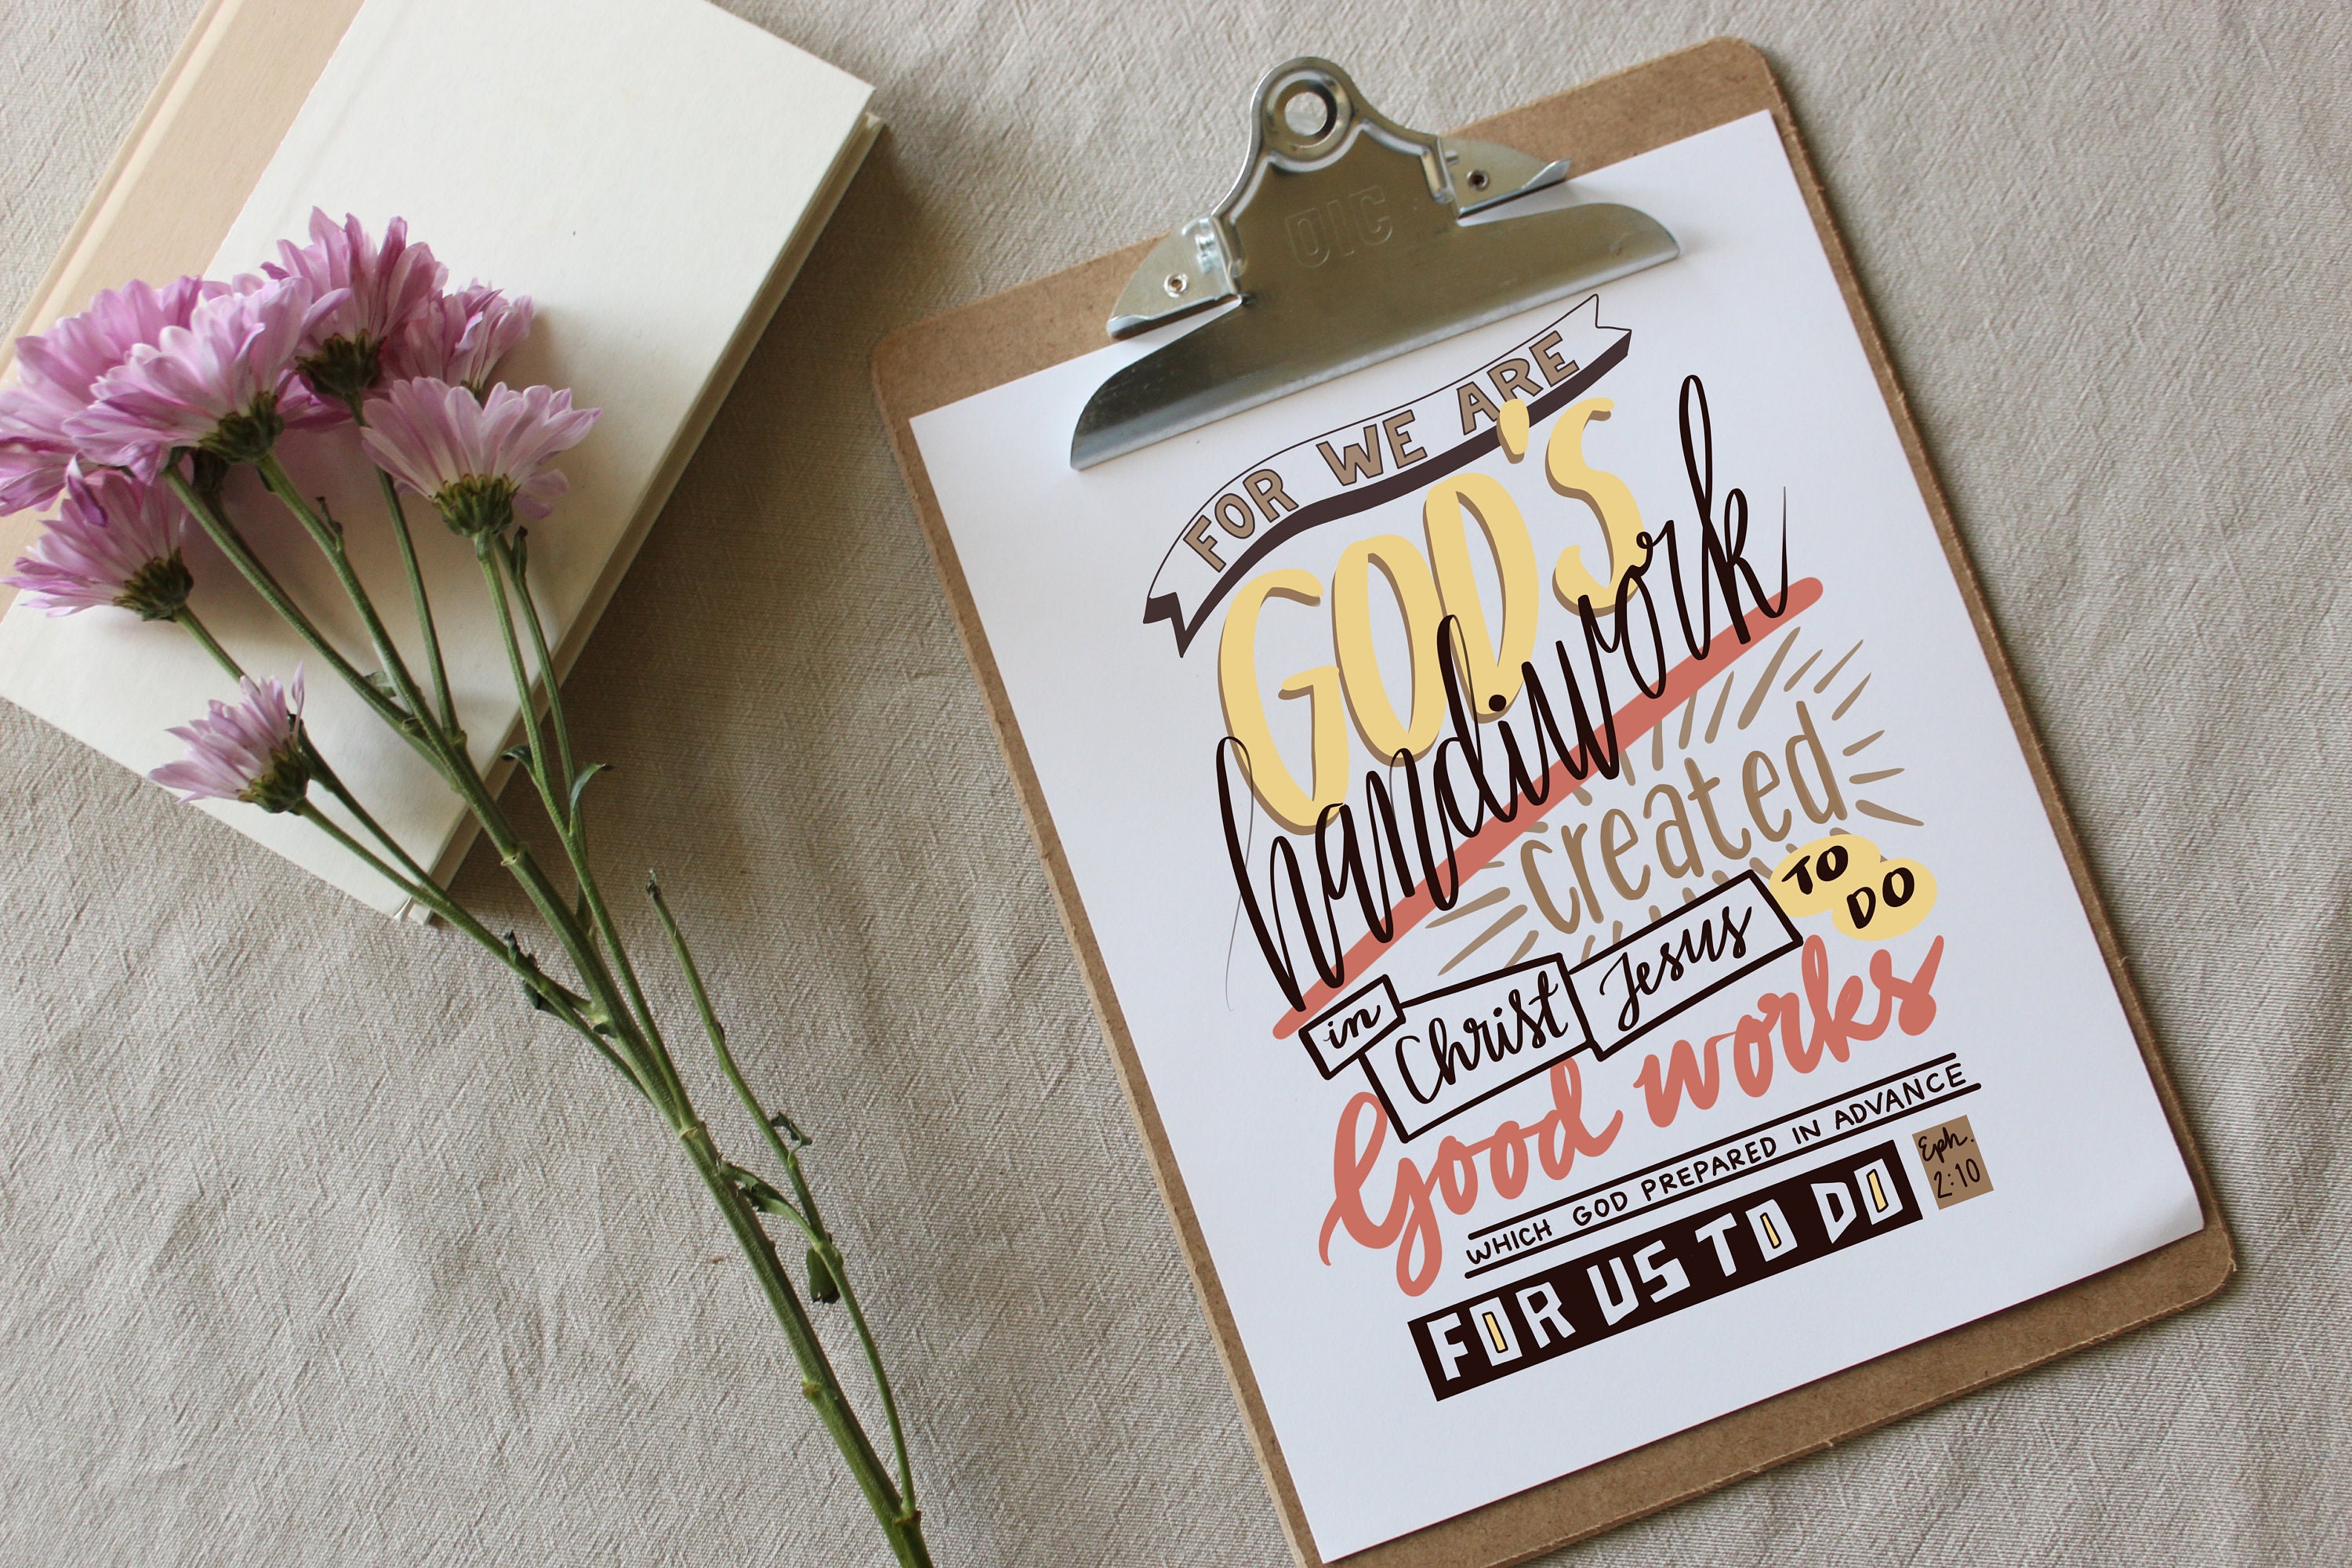 OIC
FOR WE ARE
GOD'S
handiwork
created
in Christ Jesus
TO
DO
Good works
WHICH GOD PREPARED IN ADVANCE
FOR US TO DO
Eph.
2:10